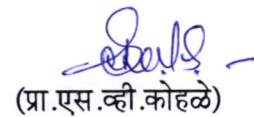 (प्रा.एस.व्ही.कोहळे)